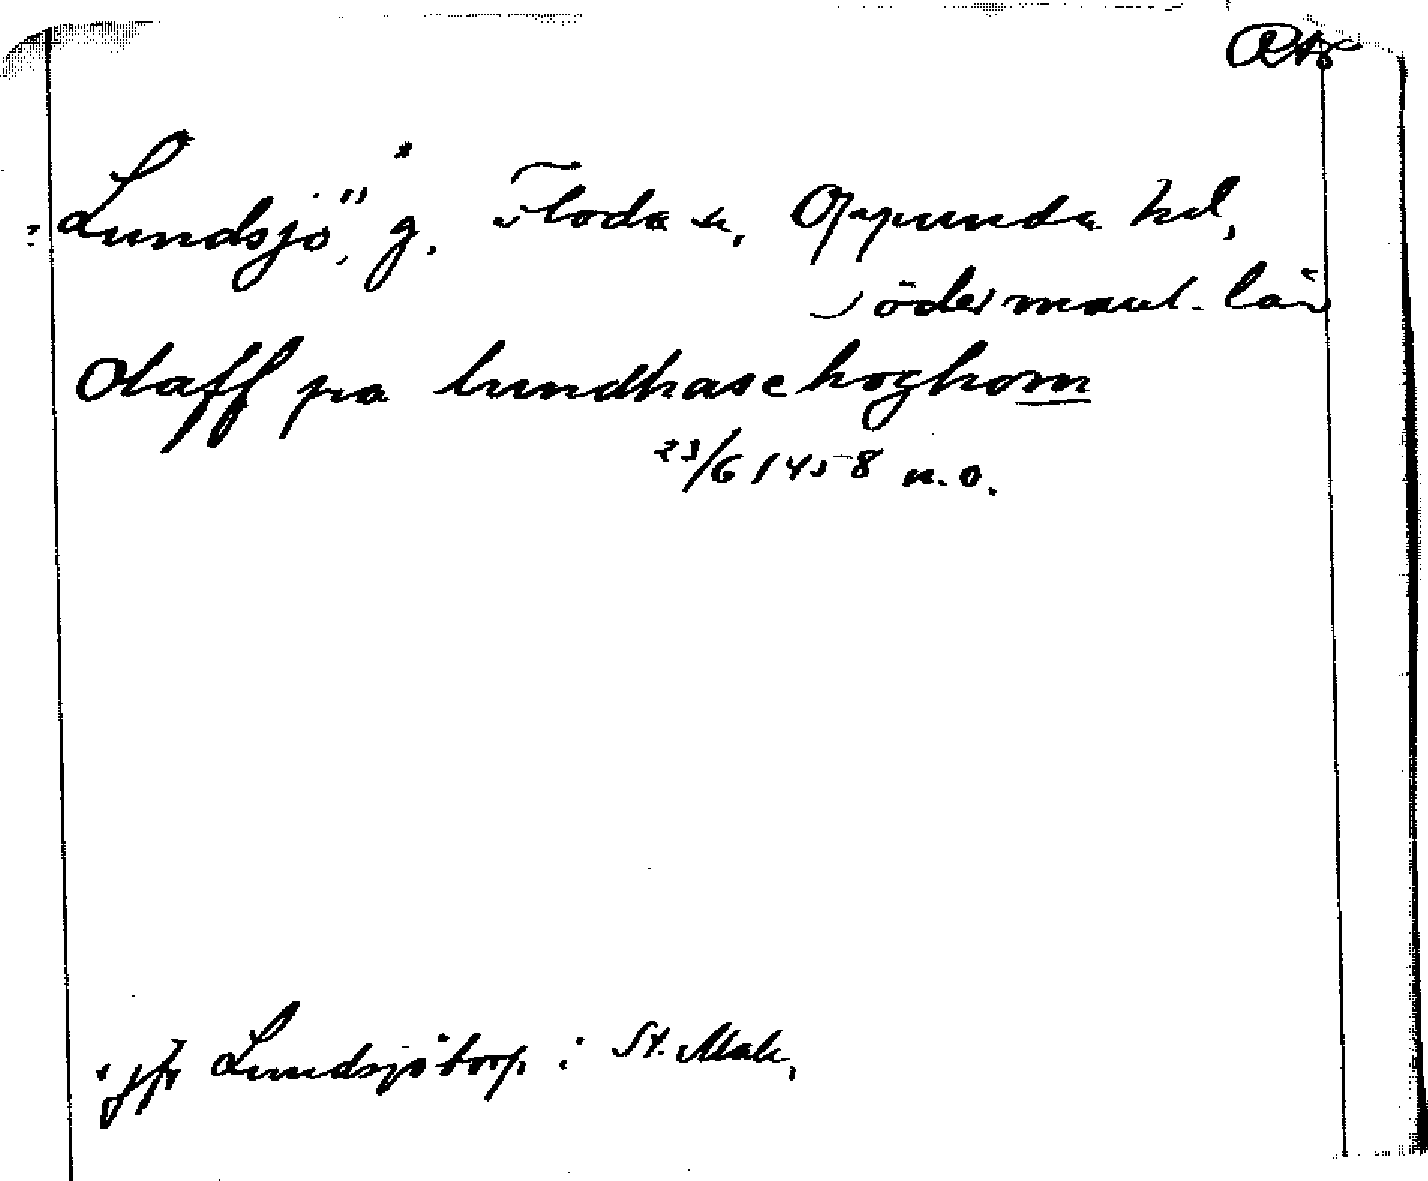 "Lundsjö", g. Floda sn, Oppunda hd,
Södermanl. län
Olaff pa lundhasehoghom
23/6 1458 n.o.
jfr Lundsjötorp i St. Malm,